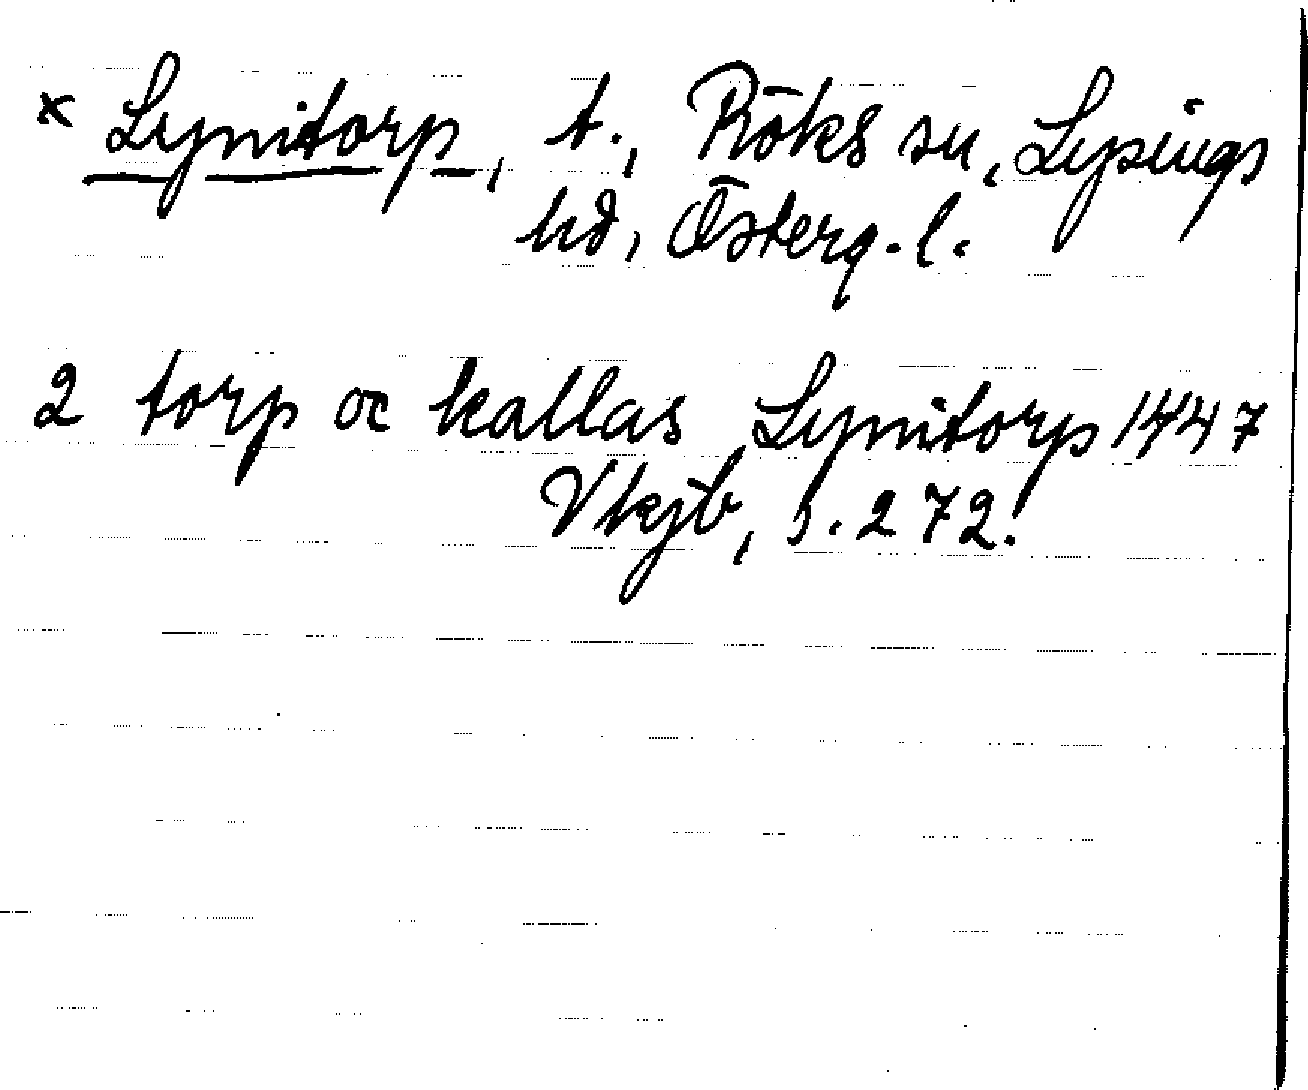 × Lynitorp, t., Röks sn, Lysings
hd, Österg. l.
2 torp oc kallas Lynitorp 1447
Vkjb, s. 272.